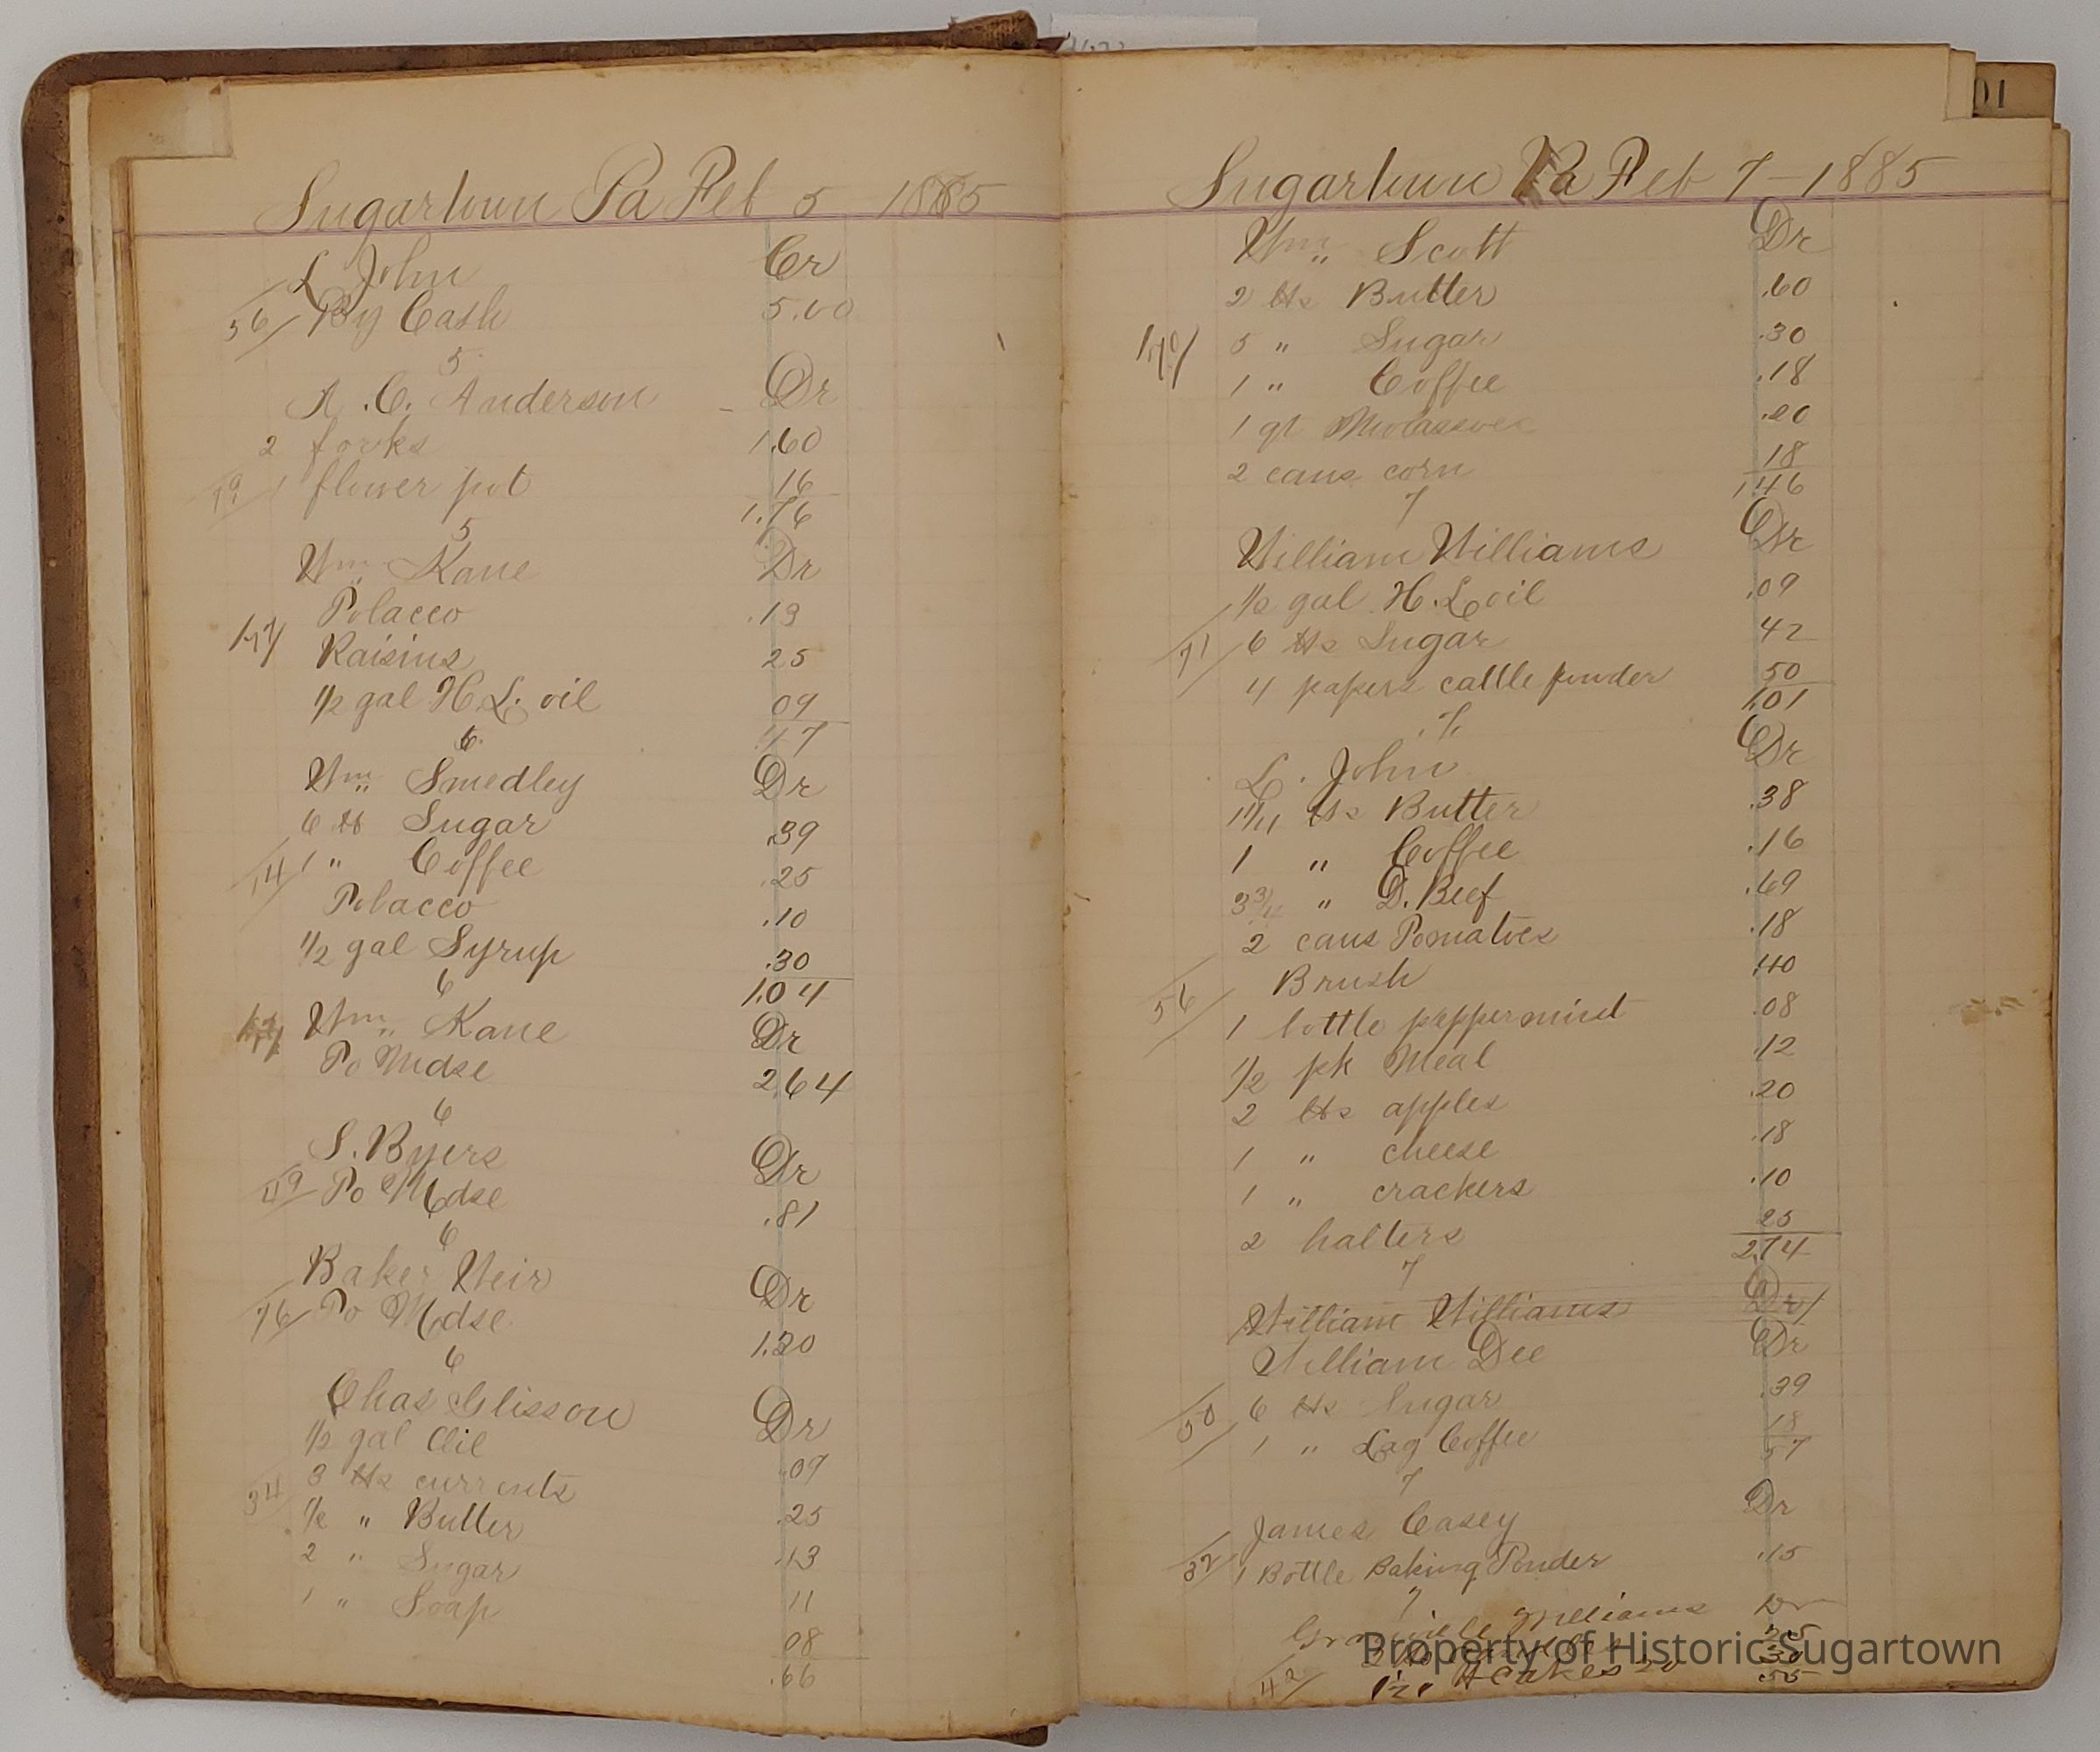 Sugartown Pa Feb 5 1885
L John Cr
56 By Cash 5.00
5
A. C. Anderson Dr
2 forks 1.60
79 1 flower pot 16
1.76
5
Wm Kane Dr
Tobacco .13
177 Raisins 25
1/2 gal H. L. oil 09
47
6
Wm Smedley Dr
6 lb Sugar .39
14 1 " Coffee .25
Tobacco .10
1/2 gal Syrup .30
1.04
6
Wm Kane Dr
To Mdse 2.64
6
S. Byers Dr
49 To Mdse .81
6
Baker Weir Dr
76 To Mdse 1.30
6
Chas Glisson Dr
1/2 gal Oil .09
34 3 lbs currents .25
1/2 " Butter .13
2 " Sugar 11
1 " Soap 08
.66
Sugartown Pa Feb 7 - 1885
Wm Scott Dr
2 lbs Butter .60
170 5 " Sugar .30
1 " Coffee .18
1 qt Molassoes .20
2 cans corn 18
1.46
7
William Williams Dr
1/2 gal H. L oil .09
71 6 lbs Sugar 42
4 papers cattle powder 50
1.01
7
L. John Dr
1 1/4 lbs Butter .38
1 " Coffee .16
3 3/4 " D. Beef .69
2 cans Tomatoes .18
Brush .40
56 1 bottle peppermint .08
1/2 pk Meal .12
2 lbs apples .20
1 " cheese .18
1 " crackers .10
2 halters 25
2.74
7
William Williams Dr
William Dee Dr
50 6 lbs Sugar .39
1 " Lag Coffee 18
57
7
James Casey Dr
32 1 Bottle Baking Powder .15
7
Granville Williams Dr
2 lbs 25
42 cakes 20 30
55
Property of Historic Sugartown
01